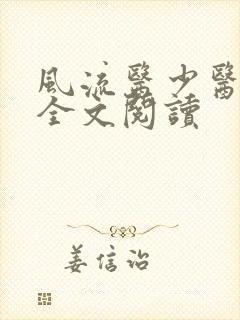 風流醫少醫
全文閱讀
姜信治